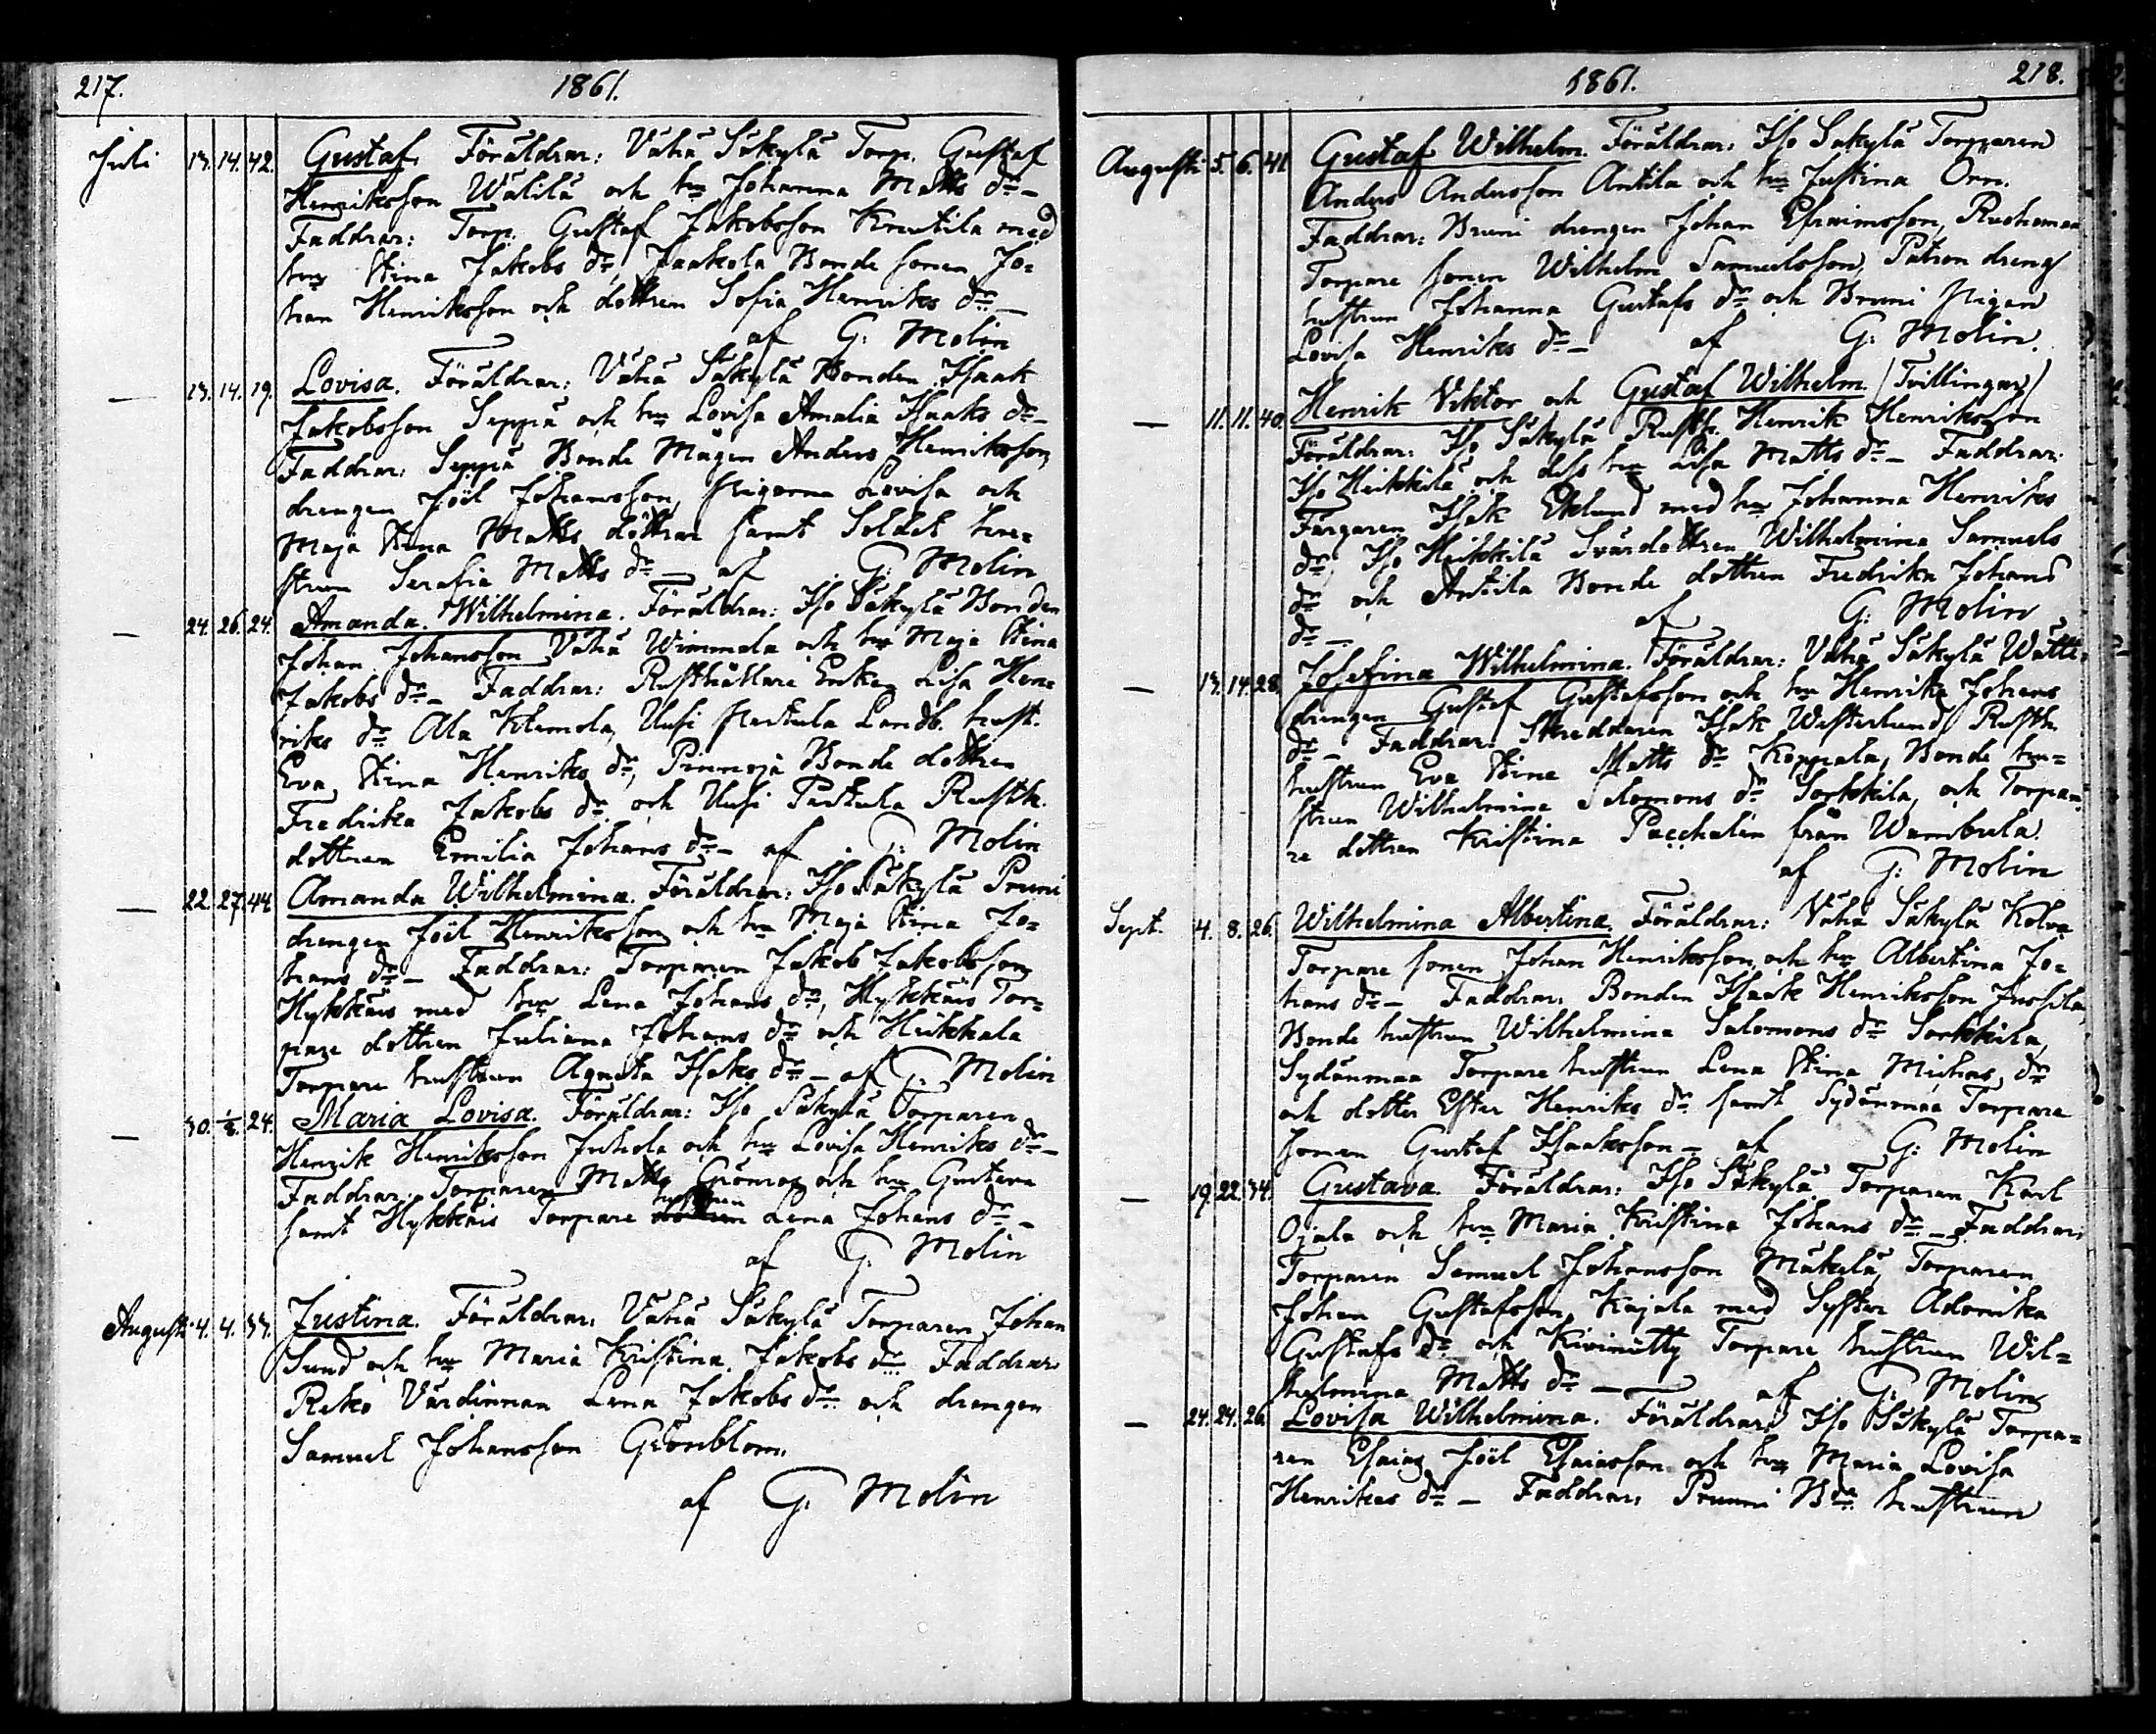 217. 1861.
Juli 13. 14. 42. Gustaf. Föräldrar: Vähä Säkylä Torp. Gustaf
Henriksson Wälilä och hu Johanna Matts dr –
Faddrar: Torp. Gustaf Jakobsson Knutila med
hu Stina Jakobs dr, Jaakola Bonde sonen Jo=
han Henriksson och dottren Sofia Henriks dr –
af G: Molin
— 13. 14. 19. Lovisa. Föräldrar: Vähä Säkylä Bonden Isaak
Jakobsson Seppä och hu Lovisa Amalia Isaaks dr –
Faddrar: Seppä Bonde Mågen Anders Henriksson,
drengen Joil Johansson, Pigorna Lovisa och
Maja Stina Matts döttrar samt Soldat hu=
strun Serafia Matts dr – af G: Molin
— 24. 26. 24. Amanda Wilhelmina. Föräldrar: Iso Säkylä Bonden
Johan Johansson Vähä Wimmala och hu Maja Stina
Jakobs dr – Faddrar: Rusthållare Enkan Lisa Hen=
riks dr Ala Klemola, Uusi Pertula Landb. hust.
Eva Stina Henriks dr, Prunnoja Bonde dottren
Fredrika Jakobs dr och Uusi Pertula Rusth.
dottren Emilia Johans dr – af G: Molin
— 22. 27. 44. Amanda Wilhelmina. Föräldrar: Iso Säkylä Pruni
drengen Joil Henriksson och hu Maja Stina Jo=
hans dr – Faddrar: Torparen Jakob Jakobsson
Hykkäis med hu Lena Johans dr, Hykkäis Tor=
pare dottren Juliana Johans dr och Heikkala
Torpare hustrun Agneta Isaks dr – af G: Molin
— 30. 1/8. 24. Maria Lovisa. Föräldrar: Iso Säkylä Torparen
Henrik Henriksson Juhola och hu Lovisa Henriks dr –
Faddrar: Torparen Matts Grönroos och hu Gustava
hustrun
samt Hykkäis Torpare dottren Lena Johans dr –
af G: Molin
Augusti 4. 4. 33. Justina. Föräldrar: Vähä Säkylä Torparen Johan
Sund och hu Maria Kristina Jakobs dr Faddrar:
Reko Värdinnan Lena Jakobs dr och drengen
Samuel Johansson Grönblom.
af G: Molin
1861. 218.
Augusti 5. 6. 41. Gustaf Wilhelm. Föräldrar: Iso Säkylä Torparen
Anders Andersson Antila och hu Justina Örn.
Faddrar: Bruni drengen Johan Efraimsson,
Torpare sonen Wilhelm Samuelsson, Patron dreng
hustrun Johanna Gustafs dr och Bruni Pigan
Lovisa Henriks dr – af G: Molin.
— 11. 11. 40. Henrik Viktor och Gustaf Wilhelm (Tvillingar)
Föräldrar: Iso Säkylä Rusth. Henrik Henriksson
Iso Heikkilä och dess hu Lisa Matts dr – Faddrar:
Färgaren Isak Eklund med hu Johanna Henriks
dr, Iso Heikkilä Svärdottren Wilhelmina Samuels
dr och Antila Bonde dottren Fredrika Johans
dr – af G: Molin
— 13. 14. 28. Josefina Wilhelmina. Föräldrar: Vähä Säkylä Wätti
drengen Gustaf Gustafsson och hu Henrika Johans
dr – Faddrar: Skreddaren Isak Westerlund, Rusth.
hustrun Eva Stina Matts dr Koppala, Bonde hu=
strun Wilhelmina Salomons dr Sorkkila, och Torpa=
re dottren Kristina Paechalin från Wambula.
af G: Molin
Sept. 4. 8. 26. Wilhelmina Albertina. Föräldrar: Vähä Säkylä Kolva
Torpare sonen Johan Henriksson och hu Albertina Jo=
hans dr – Faddrar: Bonden Isaak Henriksson Jussila,
Bonde hustrun Wilhelmina Salomons dr Sorkkila,
Sydänmaa Torpare hustrun Lena Stina Michas dr
och dotter Ester Henriks dr samt Sydänmaa Torpare
sonen Gustaf Isaaksson – af G: Molin
— 19. 22. 34. Gustava. Föräldrar: Iso Säkylä Torparen Karl
Ojala och hu Maria Kristina Johans dr – Faddrar:
Torparen Samuel Johansson Mäkelä, Torparen
Johan Gustafsson Kajala med Syster Adamika
Gustafs dr och Kivinitty Torpare hustrun Wil=
helmina Matts dr — af G: Molin
— 24. 24. 26. Lovisa Wilhelmina. Föräldrar: Iso Säkylä Torpa=
ren Esaias Joil Esaiasson och hu Maria Lovisa
Henriks dr – Faddrar: Prunni Bde hustrun